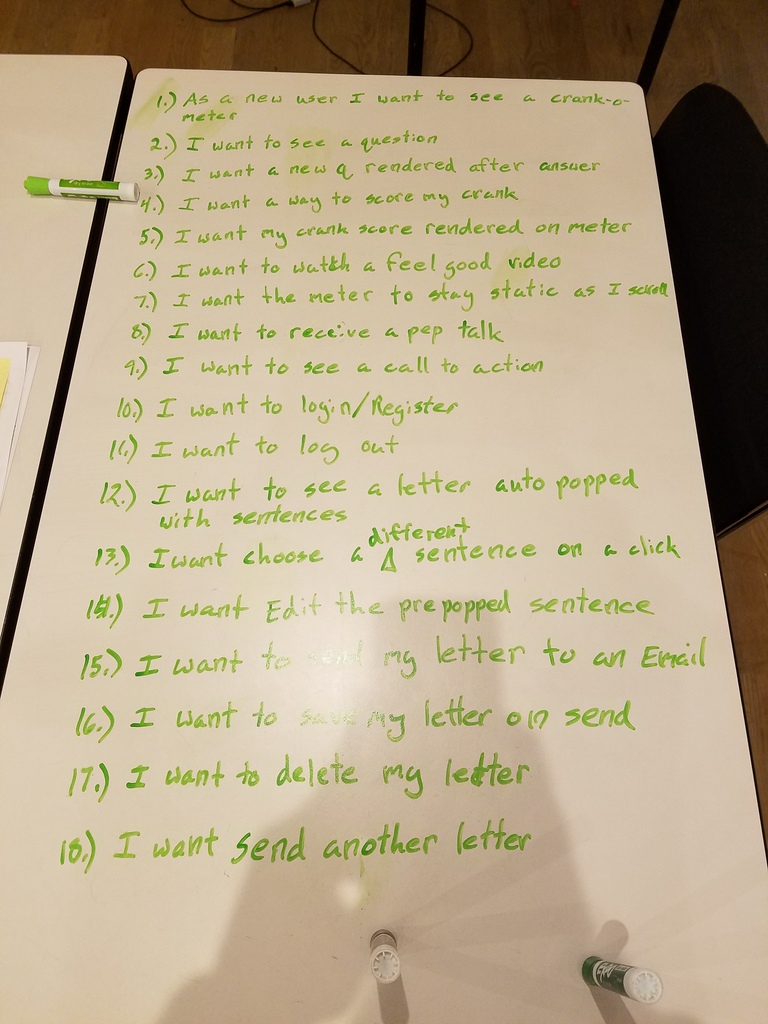 1.) As a new user I want to see a crank-o-
meter
2.) I want to see a question
3.) I want a new Q rendered after answer
4.) I want a way to score my crank
5.) I want my crank score rendered on meter
6.) I want to watch a feel good video
7.) I want the meter to stay static as I scroll
8.) I want to receive a pep talk
9.) I want to see a call to action
10.) I want to login/Register
11.) I want to log out
12.) I want to see a letter auto popped
with sentences
different
13.) I want choose a Δ sentence on a click
14.) I want Edit the prepopped sentence
15.) I want to send my letter to an Email
16.) I want to save my letter on send
17.) I want to delete my letter
18.) I want send another letter